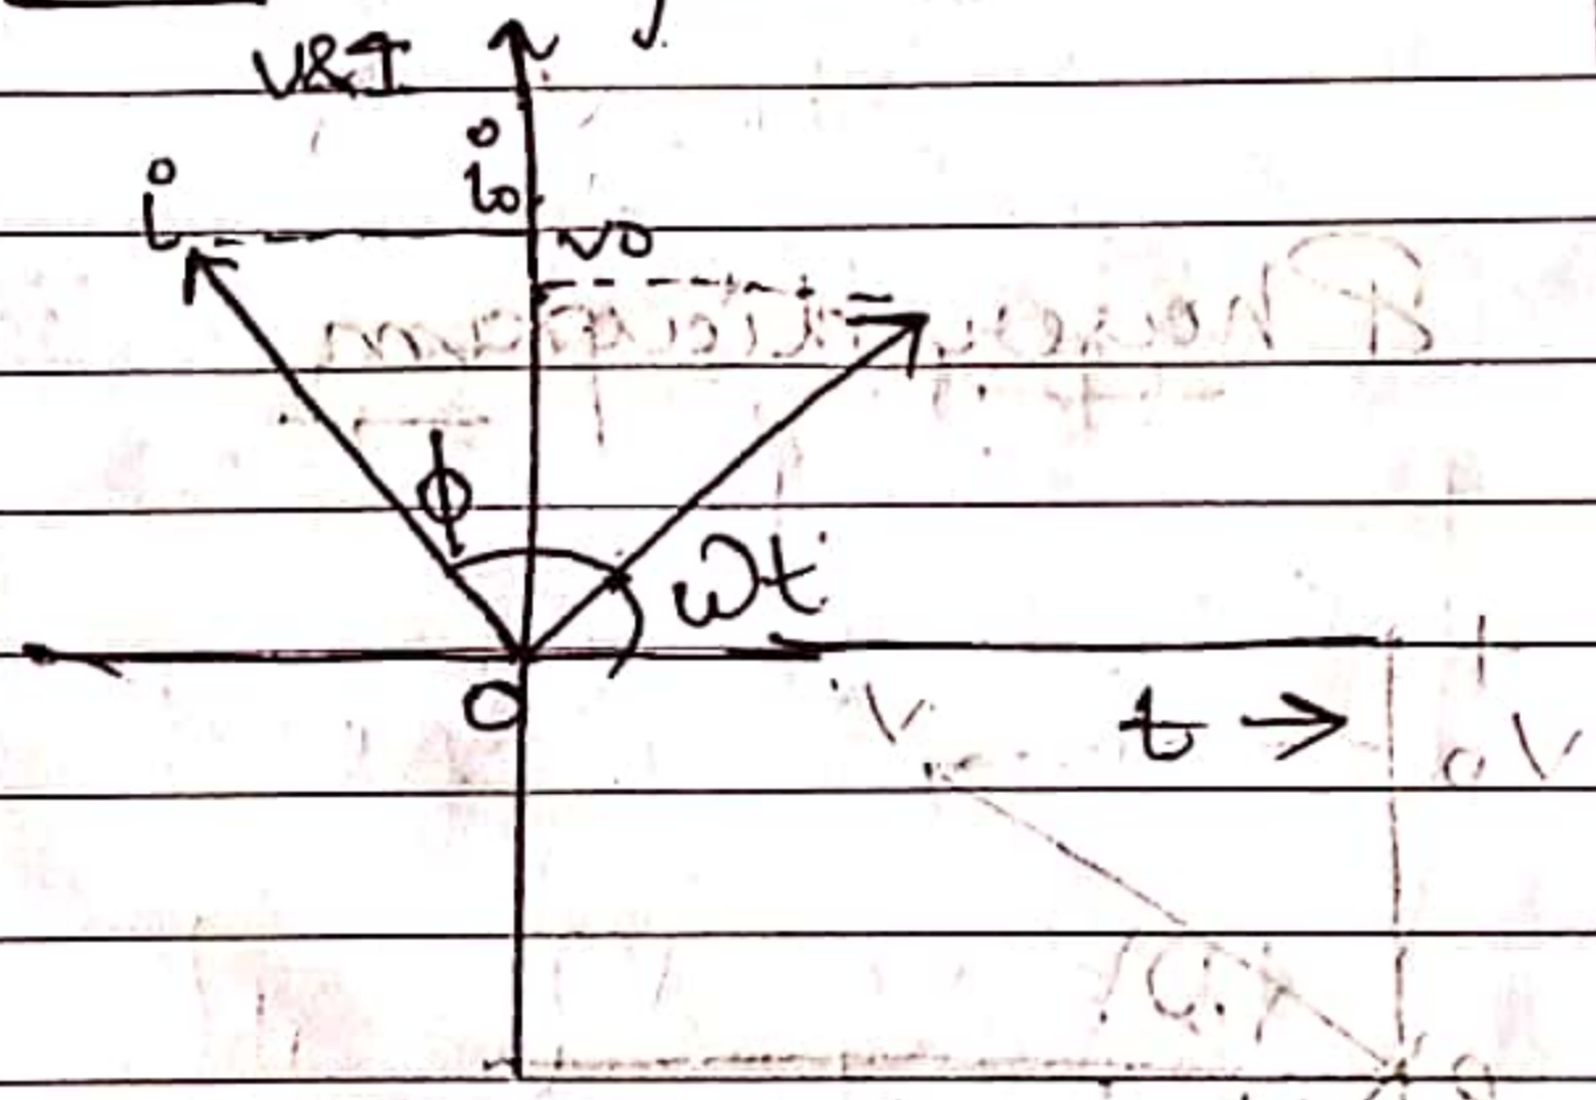 V&I
i₀
i
v₀
ϕ
ωt
O
t →